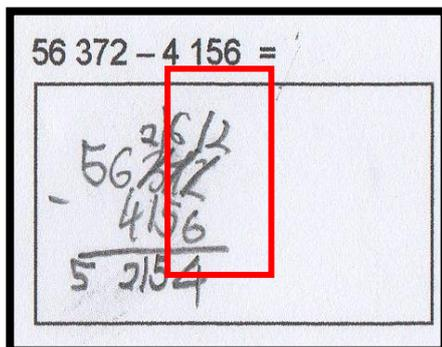 56 372 – 4 156 =
2 16 12
56 372
- 4156
5 2154